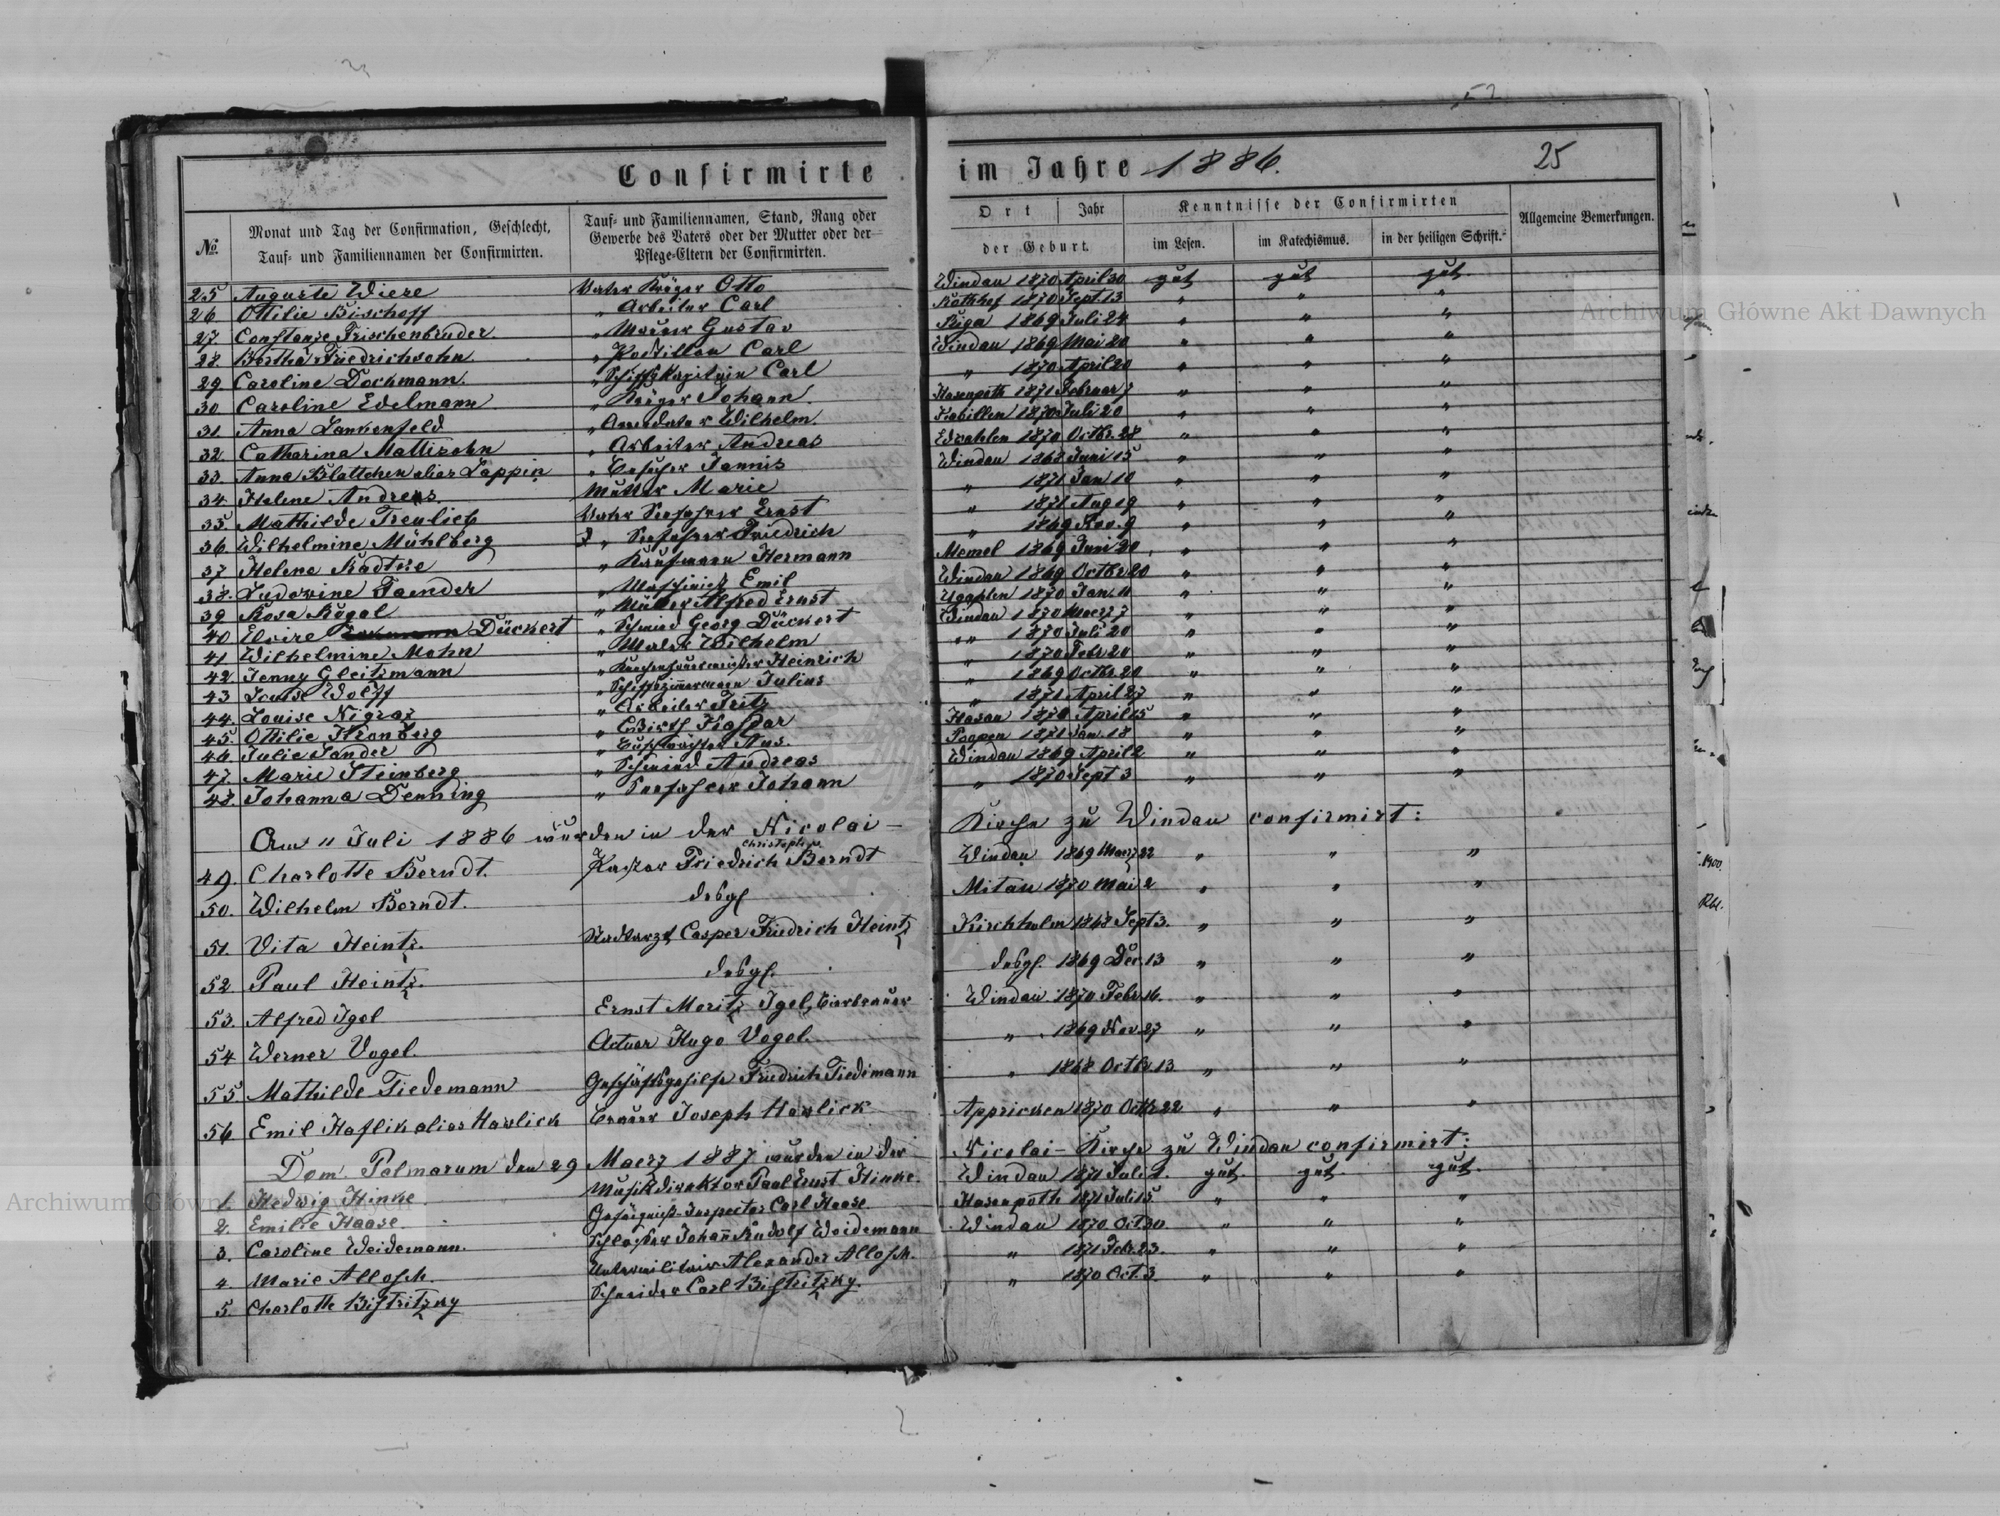 52
Confirmirte im Jahre 1886. 25
№. Monat und Tag der Confirmation, Geschlecht, Tauf- und Familiennamen der Confirmirten. Tauf- und Familiennamen, Stand, Rang oder Gewerbe des Vaters oder der Mutter oder der Pflege-Eltern der Confirmirten. Ort Jahr der Geburt. Kenntnisse der Confirmirten im Lesen. im Katechismus. in der heiligen Schrift. Allgemeine Bemerkungen.
25 Auguste Wiese Vater Krüger Otto Windau 1870 April 30 gut gut gut
26 Ottilie Bischoff " Arbeiter Carl 1870 Sept. 13 " " "
27. Constanze Frischenbruder. " Maurer Gustav Riga 1869 Juli 24 " " "
28. Bertha Friedrichsohn " Postillon Carl Windau 1869 Mai 20 " " "
29 Caroline Dockmann. " Schiffskapitain Carl " 1870 April 20 " " "
30 Caroline Edelmann " Krüger Johann. Hasenpoth 1871 Februar 7 " " "
31. Anna Lankenfeld " Wilhelm. Kabillen 1870 Juli 20 " " "
32. Catharina Mattisohn " Arbeiter Andreas Edwahlen 1870 Octbr. 28 " " "
33. Anna Blattchen alias Lappin " Jannis Windau 1868 Juni 15 " " "
34. Helene Andreas Mutter Marie " 1871 Jan 10 " " "
35. Mathilde Treulieb Vater Seefahrer Ernst " 1871 Aug 19 " " "
36. Wilhelmine Mühlberg " Seefahrer Friedrich " 1869 Nov. 9 " " "
37 Helene Radtke " Kaufmann Hermann Memel 1869 Juni 20 " " "
38. Ludowine Taender " Maschinist Emil Windau 1869 Octbr 20 " " "
39 Rosa Kögel " Müller Alfred Ernst Ugahlen 1870 Jan. 11 " " "
40 Elvire Dückert " Schmied Georg Dückert Windau 1870 Maerz 7 " " "
41. Wilhelmine Mohn " Maler Wilhelm " " 1870 Juli 20 " " "
42 Jenny Gleitzmann " Heinrich " 1870 Febr 20 " " "
43 Louise Wolff " Schiffszimmermann Julius " 1869 Octbr. 20 " " "
44. Louise Nigraz " Arbeiter Fritz " 1871 April 27 " " "
45. Ottilie Kronberg " Wirth Kaspar Hasau 1870 April 15 " " "
46. Julie Sander " Buschwächter Ans. Popen 1871 Jan. 18 " " "
47. Marie Steinberg " Schmied Andreas Windau 1869 April 2 " " "
48. Johanna Denning " Seefahrer Johann " 1870 Sept 3 " " "
Am " Juli 1886 wurden in der Nicolai- Kirche zu Windau confirmirt:
Christoph
49. Charlotte Berndt. Pastor Friedrich Berndt Windau 1869 Maerz 22 " " "
50. Wilhelm Berndt. desgl Mitau 1870 Mai 2 " " "
51. Vita Heintz. Stadtarzt Casper Friedrich Heintz Kirchholm 1868 Sept 3. " " "
52 Paul Heintz. desgl. desgl. 1869 Dec. 13 " " "
53. Alfred Igel Ernst Moritz Igel, Bierbrauer Windau 1870 Febr 16. " " "
54 Werner Vogel. Actuar Hugo Vogel. " 1869 Nov. 27 " " "
55 Mathilde Tiedemann Geschäftsgehilfe Friedrich Tiedemann " 1868 Octbr. 13 " " "
56 Emil Haflik alias Hawlick Brauer Joseph Hawlick Appricken 1870 Octbr 22 " " "
Dom. Palmarum den 29 Maerz 1887 wurden in der Nicolai-Kirche zu Windau confirmirt:
1. Hedwig Hinke Musikdirektor Paul Ernst Hinke. Windau 1871 Juli 1. gut gut gut
2. Emilie Haase Gefängniss-Inspector Carl Haase. Hasenpoth 1871 Juli 15 " " "
3. Caroline Weidemann. Schlosser Johann Rudolf Weidemann Windau 1870 Oct. 30 " " "
4. Marie Allosch. Untermilitair Alexander Allosch. " 1871 Febr. 23. " " "
5. Charlotte Bistritzky Schneider Carl Bistritzky. " 1870 Oct. 3 " " "
Archiwum Główne Akt Dawnych
Archiwum Główne Akt Dawnych